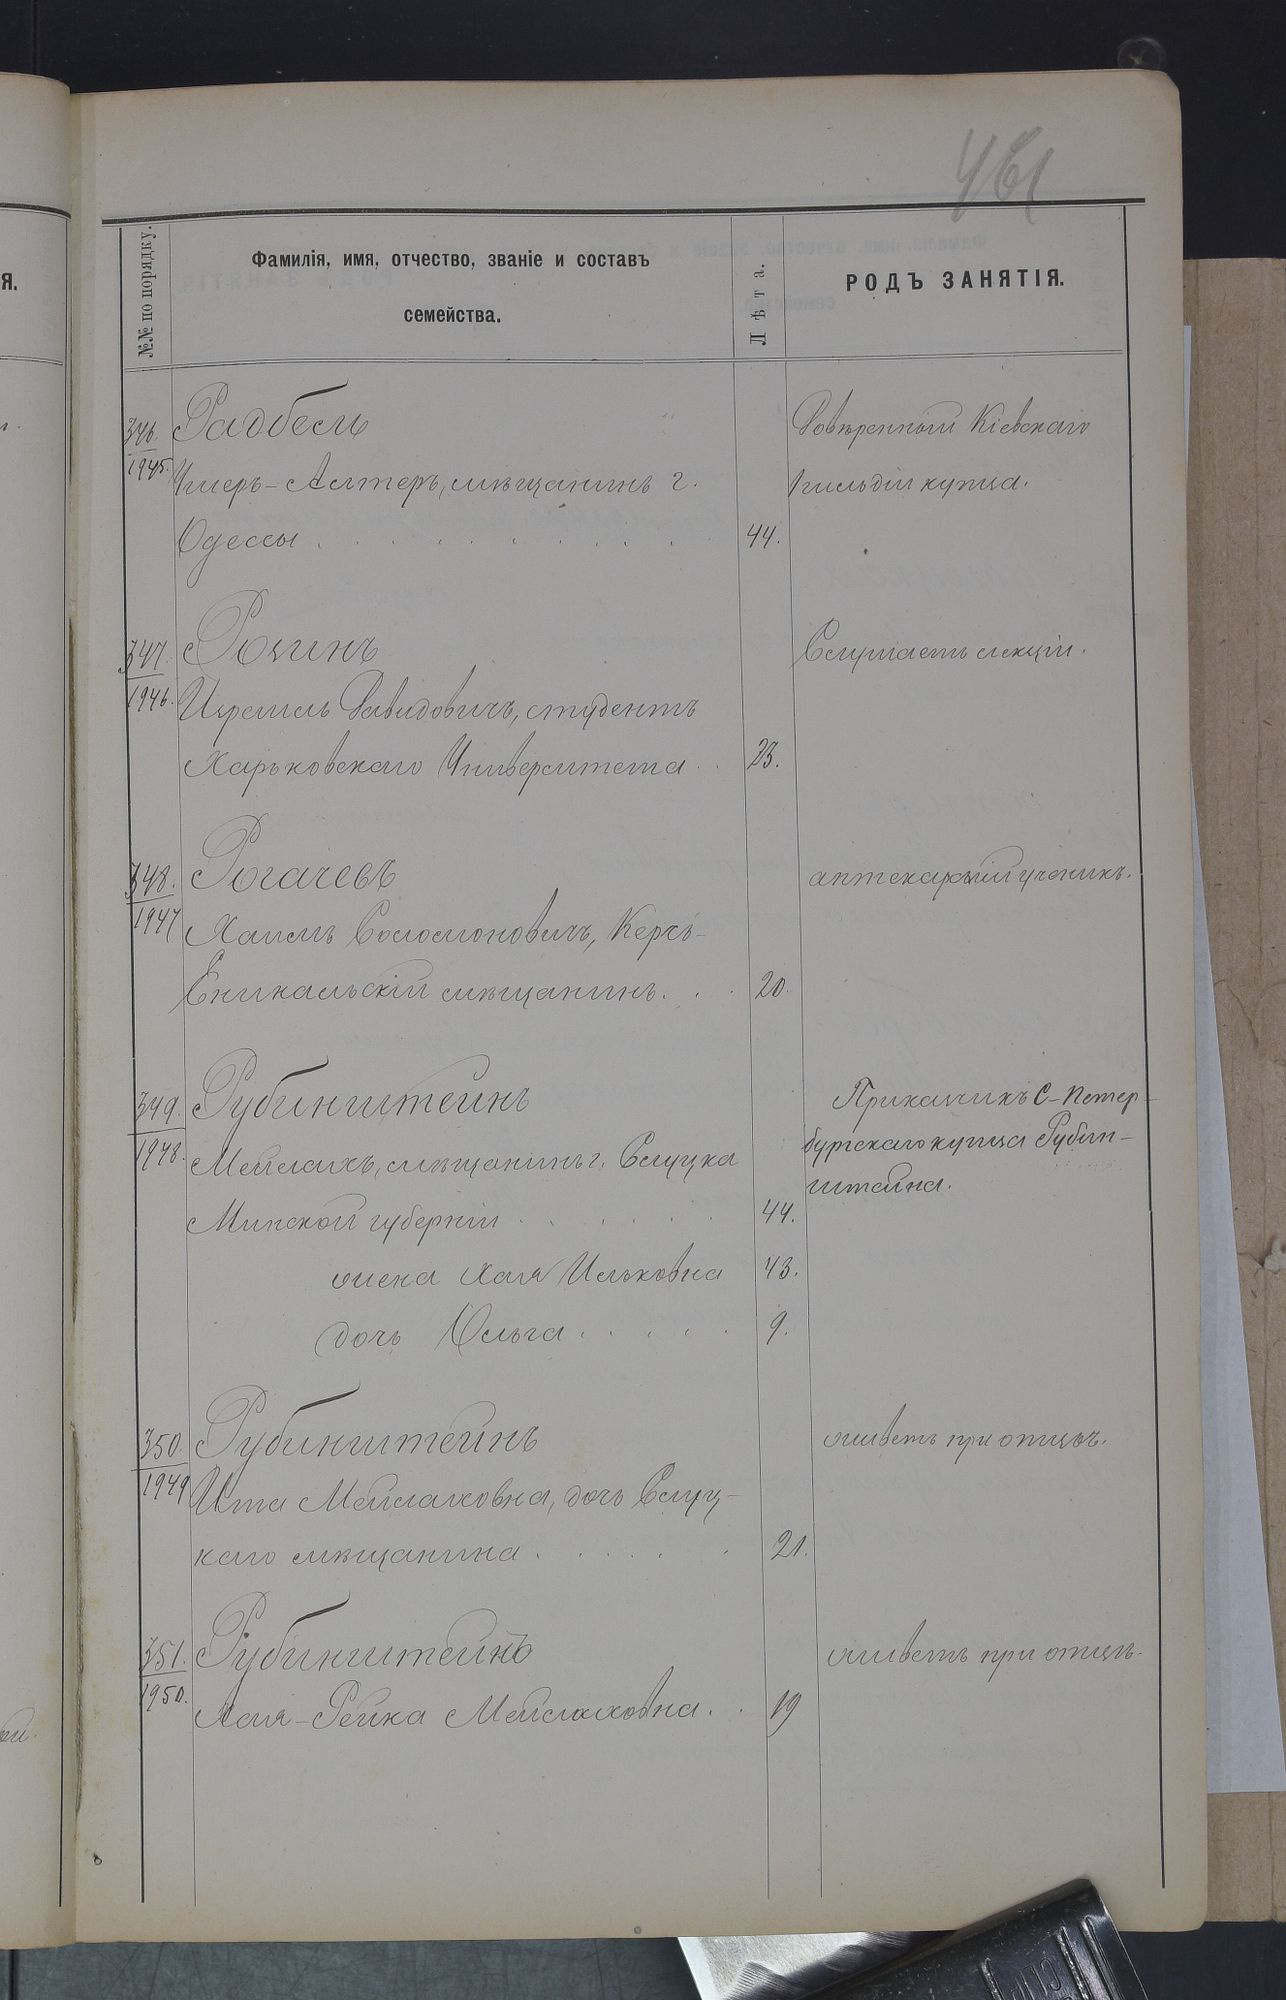 461
№№ по порядку.
Фамилія, имя, отчество, званіе и составъ
семейства.
Лѣта.
РОДЪ ЗАНЯТІЯ.
Я.
346.
1945.
Радбель
Довѣренный Кіевскаго
Алтеръ, мѣщанинъ г.
1 гильдіи купца.
Одессы . . . . . . . . . . 44.
347.
1946.
Розинъ
Слушаетъ лекціи.
Израиль Давидовичъ, студентъ
Харьковскаго Университета . . 23.
348.
1947
Рогачевъ
аптекарскій ученикъ.
Хаимъ Соломоновичъ, Керчь-
Еникальскій мѣщанинъ. . . 20.
349.
1948.
Рубинштейнъ
Приказчикъ С-Петер-
бургскаго купца Рубин-
штейна.
Мейлахъ, мѣщанинъ г. Слуцка
Минской губерніи . . . . . . 44.
жена Хая Ильковна 43.
дочь Ольга . . . . . 9.
350.
1949
Рубинштейнъ
живетъ при отцѣ.
Ита Мейлаховна, дочь Слуц-
каго мѣщанина . . . . . . 21.
351.
1950.
Рубинштейнъ
живетъ при отцѣ.
Хая-Рейка Мейлаховна. . 19